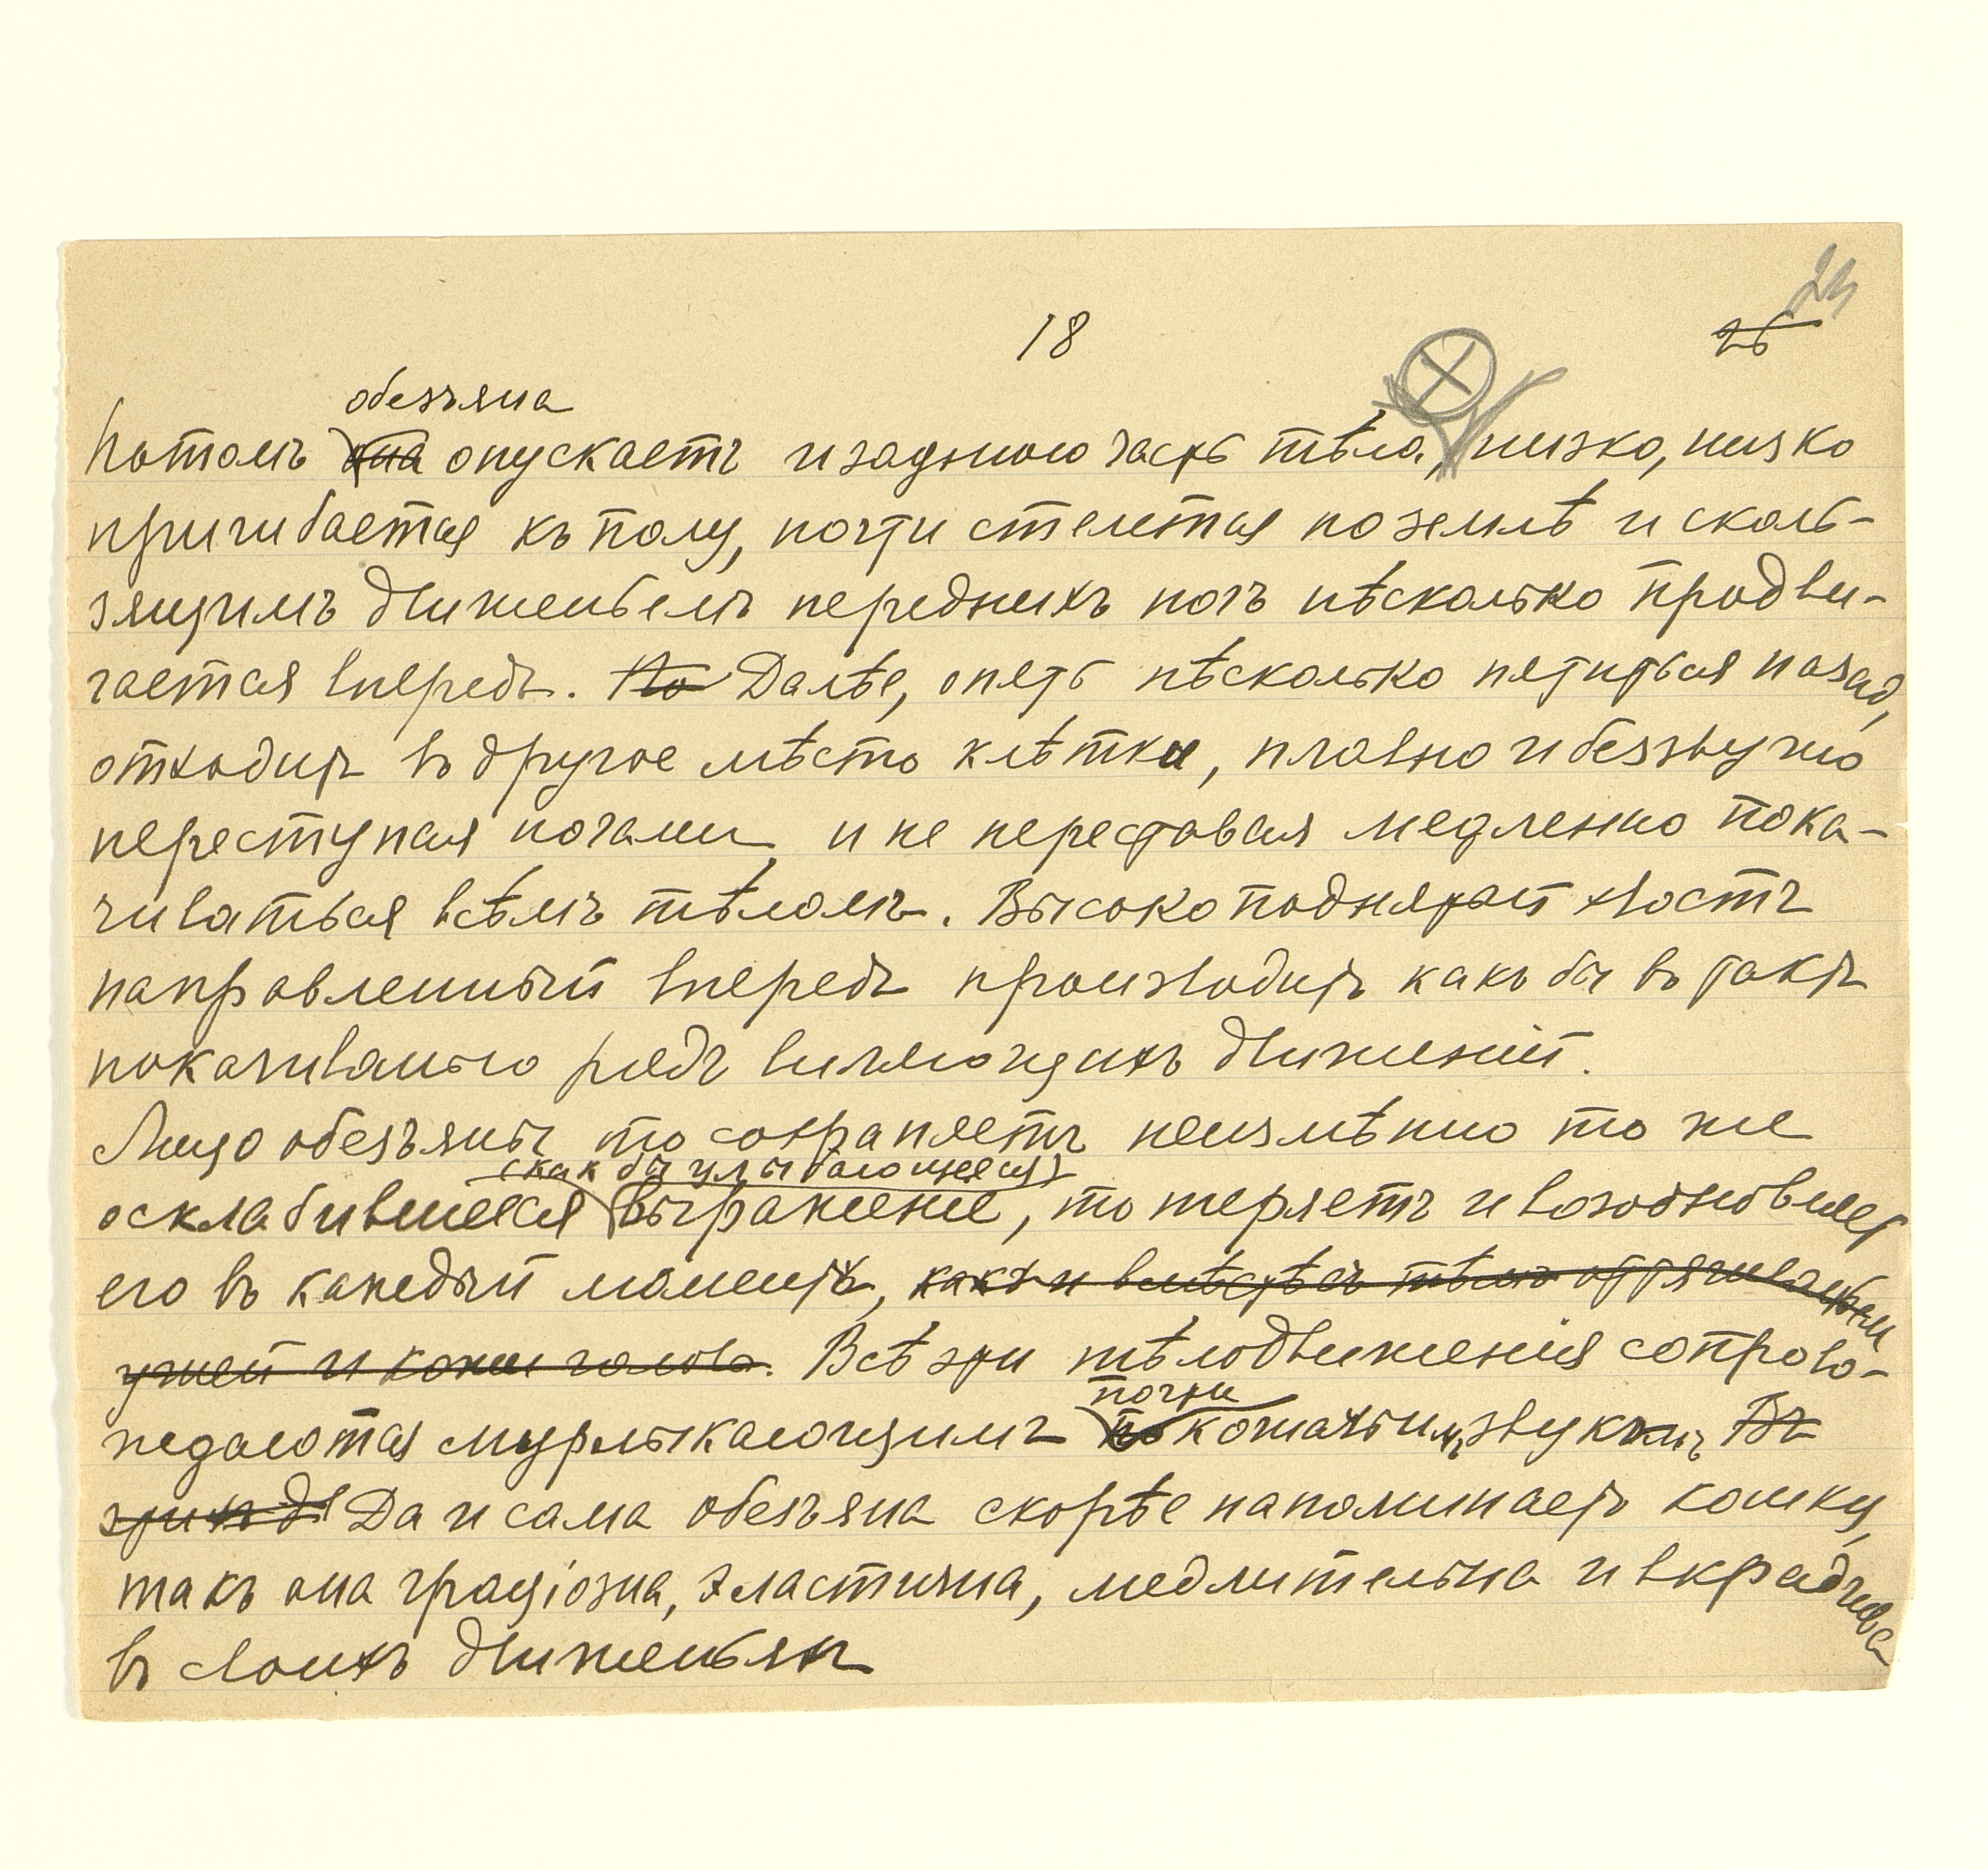 18
24
26
обезьяна
Потомъ она опускаетъ и заднюю часть тѣла, низко, низко
пригибается къ полу, почти стелется по землѣ и сколь-
зящимъ движеньемъ переднихъ ногъ нѣсколько продви-
гается впередъ. По Далѣе, опять нѣсколько пятиться назад,
отходитъ въ другое мѣсто клѣтки, плавно и беззвучно
переступая ногами, и не переставая медленно пока-
чиваться всѣмъ тѣломъ. Высоко поднятый хвостъ
направленный впередъ производитъ какъ бы въ тактъ
покачиванью рядъ виляющихъ движеній.
Лицо обезьяны то сохраняетъ неизмѣнно то же
(как бы улыбающееся)
осклабившееся выражение, то теряетъ и возобновляет
его въ каждый моментъ, какъ и вмѣстѣ съ тѣмъ оттягиваньем
ушей и кожи головы. Всѣ эти тѣлодвижения сопрово-
почти
ждаются мурлыкающимъ по кошачьимъ звукомъ Въ
этихъ дв Да и сама обезьяна скорѣе напоминаетъ кошку,
такъ она граціозна, эластична, медлительна и вкрадчива
въ своихъ движеньях